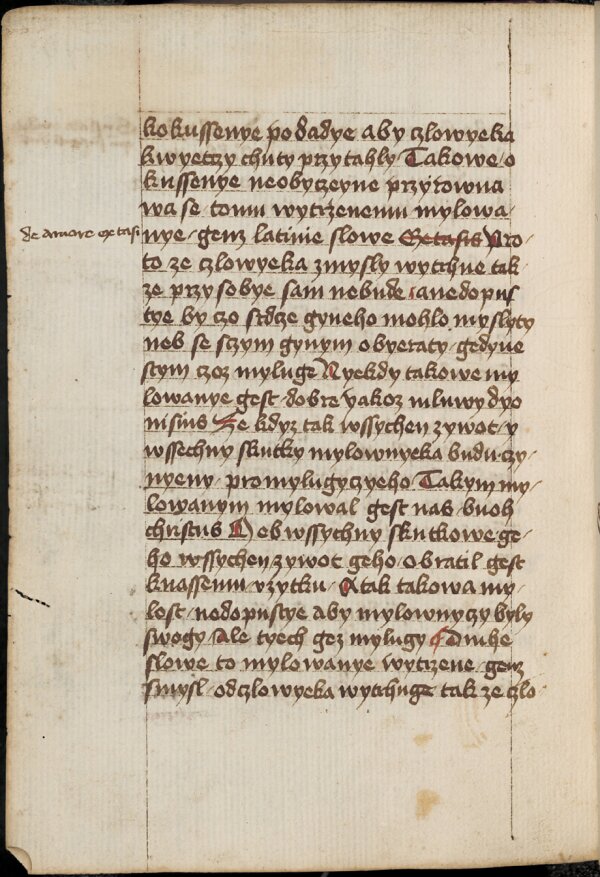 kokussenye podadye aby czlowyeka
kwyetczy chuty przytahly Takowe o
kussenye neobyczeyne przyrowna
wa se tomu wytrzenemu mylowa
de amore extasi
nye genz latinie slowe Extasis Pro
to ze czlowyeka zmysly wytrhne tak
ze przy sobye sam nebude a nedopus
tye by czo srdze gyneho mohlo myslyty
neb se sczym gynym obyeraty gedyne
stym czoz myluge Nyekdy takowe my
lowanye gest dobre yakoz mluwy dyo
nisius Ze kdyz tak wssychen zywot y
wssechny skutky mylownyeka budu czy
nyeny promylugyczyeho Takym my
lowanym mylowal gest nas buoh
christus Neb wssychny skutkowe ge
ho wssychen zywot geho obratil gest
knassemu vzytku A tak takowa my
lost nedopustye aby mylownyczy byly
swogy Ale tyech gez mylugy Druhe
slowe to mylowanye wytrzene genz
smysl odczlowyeka wytrhuge tak ze czlo